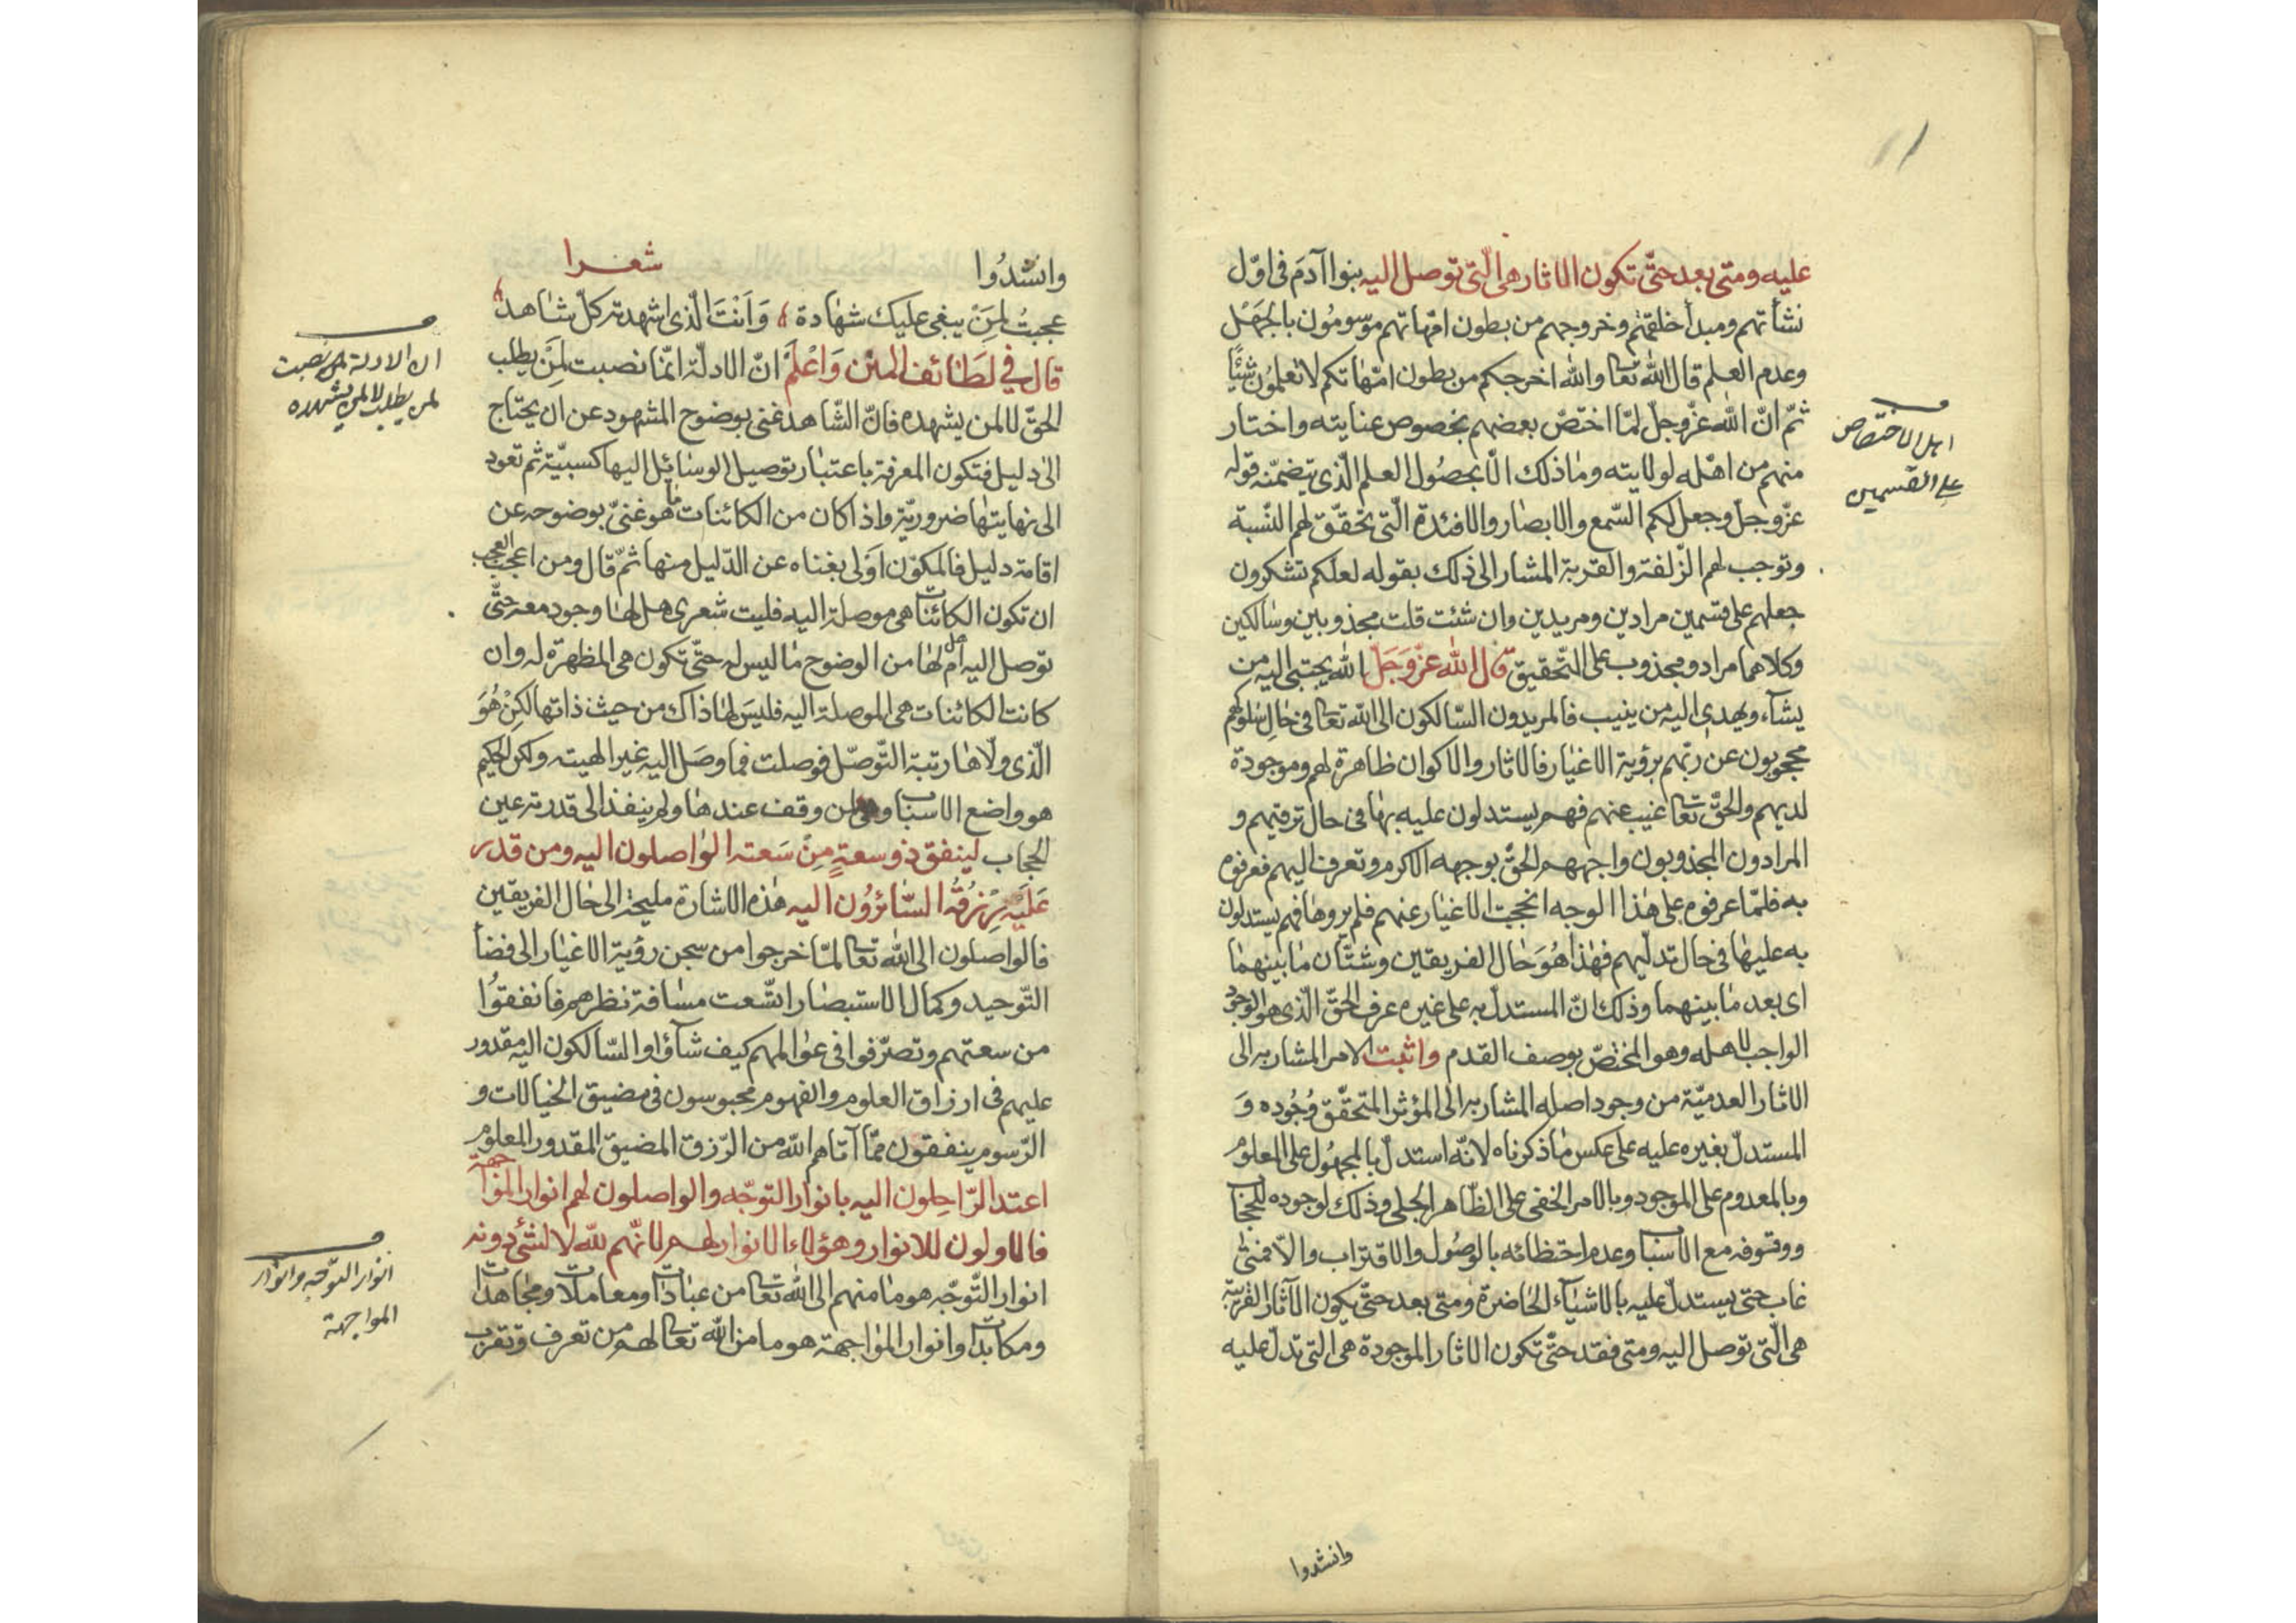 عليه ومتى بعد حتّى تكون الاثار هى الّتى توصل اليه بنوا آدم فى اوّل
نشأتهم ومبدأ خلقتهم وخروجهم من بطون امّهاتهم موسومُون بالجَهْل
وعدم العلم قال الله تعالى والله اخرجكم من بطون امّهاتكم لا تعلمُون شيئًا
ثمّ انّ الله عزّ وجلّ لمّا اختصّ بعضهم بخصوص عنايته واختار
منهم من اهّله لولايته وما ذلك الّا بحصُول العلم الّذى يتضمّنه قوله
عزّ وجلّ وجعل لكم السّمع والابصار والافئدة الّتى تحقّق لهم النّسبة
وتوجب لهم الزّلفة والقربة المشار الى ذلك بقوله لعلّكم تشكرون
جعلهم على قسمين مرادين ومريدين وان شئت قلت مجذوبين وسالكين
وكلاهما مراد ومجذوب على التّحقيق قال الله عزّ وَجَلّ الله يجتبى اليه من
يشآء ويهدى اليه من ينيب فالمريدون السّالكون الى الله تعالى فى حال سلوكهم
محجوبون عن ربّهم برؤية الاغيار فالاثار والاكوان ظاهرة لهم وموجودة
لديهم والحقّ تعالى غيب عنهم فهم يستدلون عليه بها فى حال ترقيهم و
المرادون المجذوبون واجههم الحقّ بوجهه الاكرم وتعرف اليهم فعرفوه
به فلمّا عرفوه على هذا الوجه انحجبت الاغيار عنهم فلم يروها فهم يستدلون
به عليها فى حال تدلّيهم فهذا هُوَ حال الفريقين وشتّان ما بينهما
اى بعد ما بينهما وذلك انّ المستدلّ به على غيره عرف الحقّ الّذى هو الوجود
الواجب لاهله وهو المختصّ بوصف القدم واثبت الامر المشار به الى
الاثار العدميّة من وجود اصله المشار به الى المؤثر المتحقّق وُجُوده وَ
المستدلّ بغيره عليه على عكس ما ذكرناه لانّه استدلّ بالمجهُول على المعلوم
وبالمعدوم على الموجود وبالامر الخفى على الظّاهر الجلى وذلك لوجود الحجاب
ووقوفه مع الاسباب وعدم احتظائه بالوصُول والاقتراب والّا فمتى
غاب حتى يستدلّ عليه بالاشيآء الحاضرة ومتى بعد حتّى يكون الآثار القريبة
هى الّتى توصل اليه ومتى فقد حتّى تكون الاثار الموجودة هى التى تدلّ عليه
اهل الاختصاص
على القسمين
وانشدوا
وانشدُوا شعرا
عجبتُ لمَنْ يبغى عليك شهادة وَاَنْتَ الّذى اشهدته كلّ شاهد
قال فى لَطَائف المنن وَاعْلَمْ انّ الادلّة انّما نصبت لمَنْ يطلب
الحقّ لا لمن يشهده فانّ الشّاهد غنى بوضوح المشهود عن ان يحتاج
الى دليل فتكون المعرفة باعتبار توصيل الوسائل اليها كسبيّة ثم تعود
الى نهايتها ضروريّة واذا كان من الكائنات ما هو غنىّ بوضوحه عن
اقامة دليل فالمكوّن اَوْلى بغناه عن الدّليل منها ثمّ قال ومن اعجب العجب
ان تكون الكائنات هى موصلة اليه فليت شعرى هل لها وجود معه حتّى
توصل اليه ام هل لها من الوضوح ما ليس له حتّى تكون هى المظهرة له وان
كانت الكائنات هى الموصلة اليه فليس لها ذاك من حيث ذاتها لكِنْ هُوَ
الّذى ولّاها رتبة التّوصّل فوصلت فما وصَل اليه غير الهيته ولكن الحكيم
هو واضع الاسباب وهى لمن وقف عندها ولم ينفذ الى قدرته عين
الحجاب لينفق ذو سعةٍ مِنْ سَعته الواصلون اليه ومن قدر
عَلَيْه رِزْقُهُ السَّائرُون اليه هذه الاشارة مليحة الى حال الفريقين
فالواصلون الى الله تعالى لمّا خرجوا من سجن رؤية الاغيار الى فضاء
التّوحيد وكمال الاستبصار اتّسعت مسافة نظرهم فانفقوُا
من سعتهم وتصرّفوا فى عوالمهم كيف شآؤا والسّالكون اليه مقدور
عليهم فى ارزاق العلوم والفهوم محبوسون فى مضيق الخيالات و
الرّسوم ينفقون ممّا آتاهم الله من الرّزق المضيق المقدور المعلوم
اهتدا الرّاحِلون اليه بانوار التوجّه والواصلون لهم انوار المواجهة
فالاولون للانوار وهؤلاء الانوار لهم لانّهم للّه لا لشئ دونه
انوار التّوجّه هو ما منهم الى الله تعالى من عبادات ومعاملات ومجاهدات
ومكابدات وانوار المواجهة هو ما من الله تعالى لهم من تعرف وتقرّب
ان الادلة نصبت
لمن يطلب لا لمن يشهده
انوار التوّجه وانوار
المواجهة